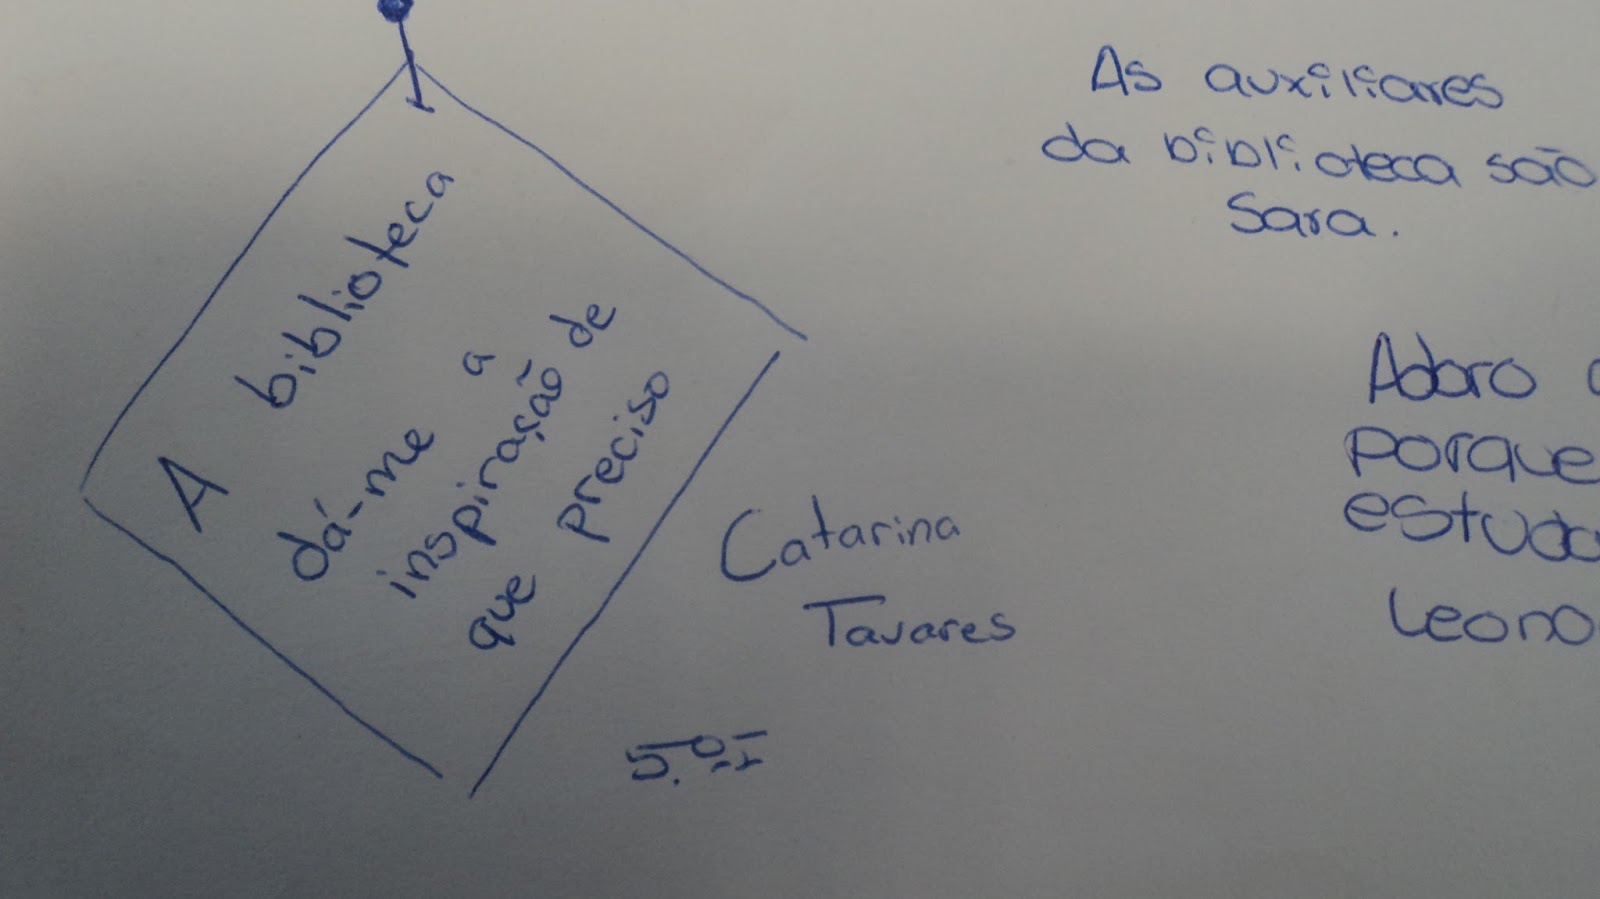 A biblioteca
dá-me a
inspiração de
que preciso
Catarina
Tavares
5.º I
As auxiliares
da biblioteca são
Sara.
Adoro
porque
estuda
Leono